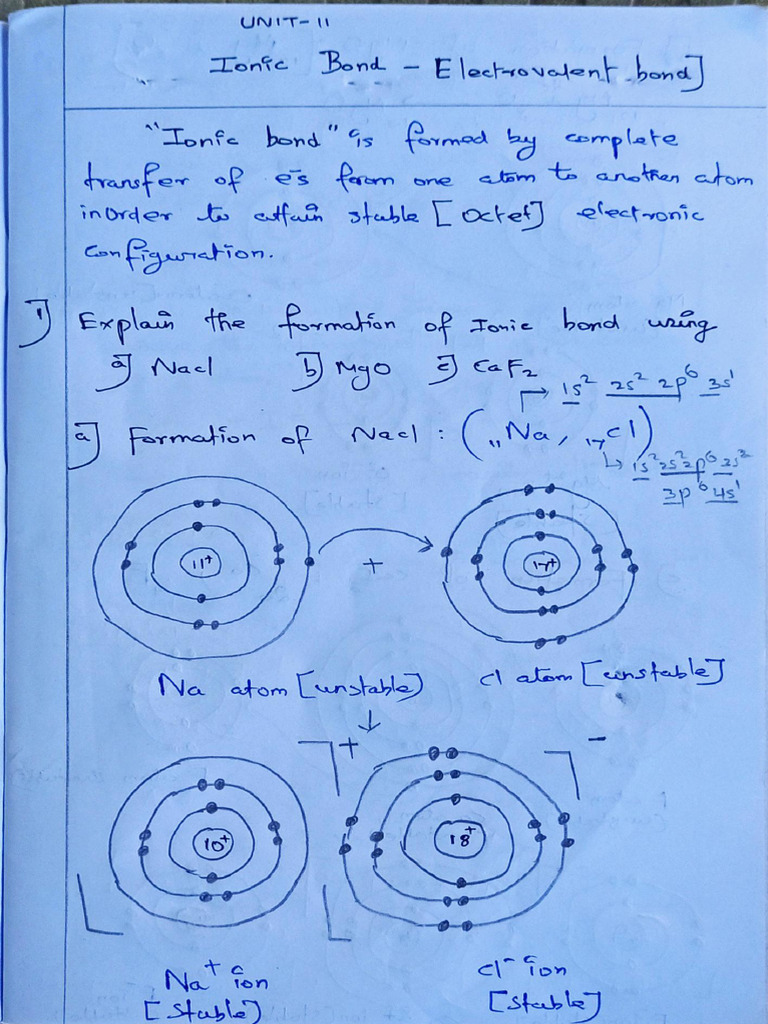 UNIT-11
Ionic Bond - Electrovalent bond]
"Ionic bond" is formed by complete
transfer of e⁻s from one atom to another atom
inorder to attain stable [Octet] electronic
configuration.
1] Explain the formation of Ionic bond using
a] Nacl b] MgO c] CaF₂
→ 1s² 2s² 2p⁶ 3s¹
a] Formation of Nacl : (₁₁Na, ₁₇Cl)
↳ 1s² 2s² 2p⁶ 3s²
3p⁶ 4s¹
11⁺ + 17⁺
Na atom [unstable] Cl atom [unstable]
↓
+ -
10⁺ 18⁺
Na⁺ ion Cl⁻ ion
[stable] [stable]